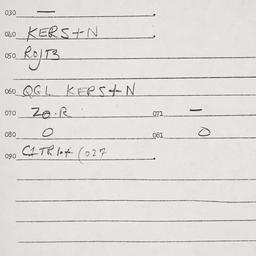 030 —
040 KERStN
050 RojT3
060 QGL KEPStN
070 Z0.R 071 —
080 0 081 0
090 C1TR1.t (027